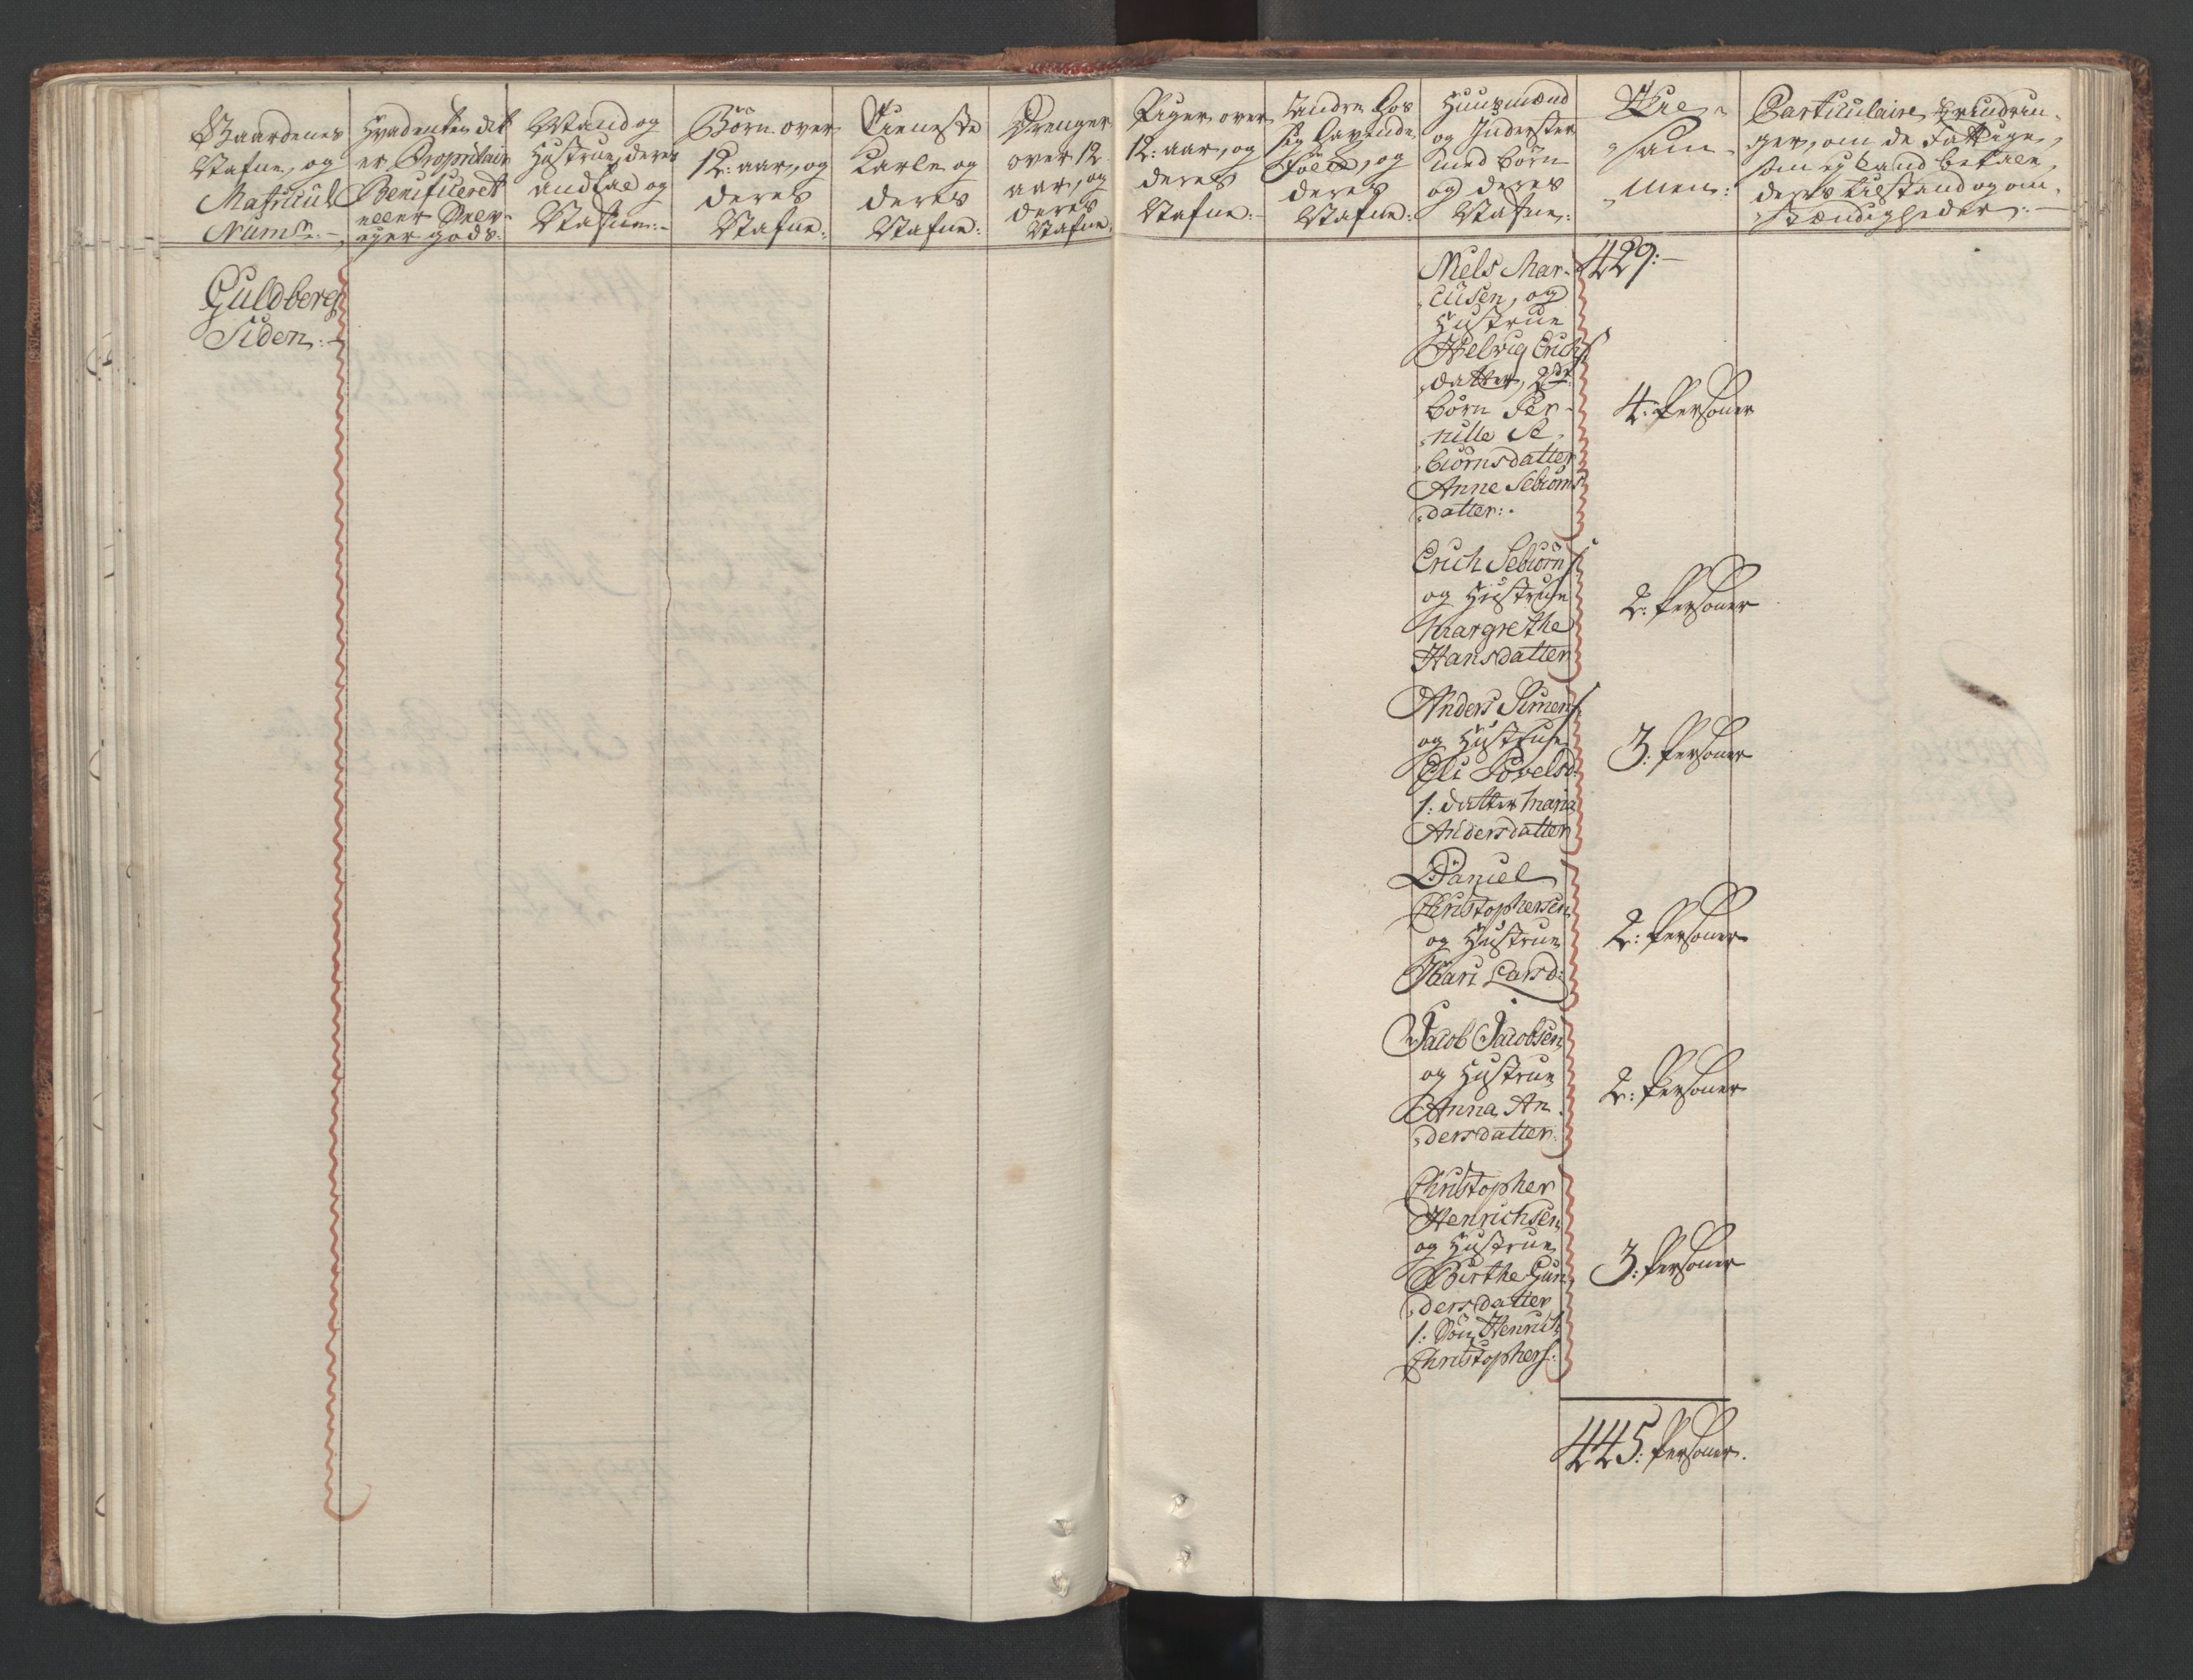 Gaardenes
Nafne, og
Matricul
Numr:
Hvad enten det
er Proprietair
Beneficeret
eller Selv-
eyer gods:
Mand og
Hustrue, deres
andtal og
Nafne:
Börn over
12: aar, og
deres
Nafne:
Tieneste
Karle og
deres
Nafne:
Drenger
over 12
aar, og
deres
Nafne:
Piger over
12: aar, og
deres
Nafne:
Andre hos
sig havende
Folck, og
deres
Nafne:
Huusmænd
og Inderster
med börn
og deres
Nafne:
Til-
sam-
men:
Particulaire Erindrin-
ger, om de Fattige,
som ej kand betale,
deres tilstand og om-
stændigheder:
Guldberg
Siden:
429:
Niels Mar-
cusen, og
Hustrue
Helvig Erichs
datter, 2de
börn Per-
nille Se-
biörnsdatter
Anne Sebiörns
datter:
4: Personer
Erich Sebiörns:
og Hustrue
Margrethe
Hansdatter
2: Personer
Anders Simens:
og Hustrue
Eli Povelsd:
1: datter Maria
Andersdatter
3: Personer
Daniel
Christophersen
og Hustrue
Kari Larsd:
2: Personer
Jacob Jacobsen
og Hustrue
Anna An-
dersdatter:
2: Personer
Christopher
Henrichsen
og Hustrue
Birthe Gun-
dersdatter
1: Sön Henrich
Christophers:
3: Personer
445: Personer.